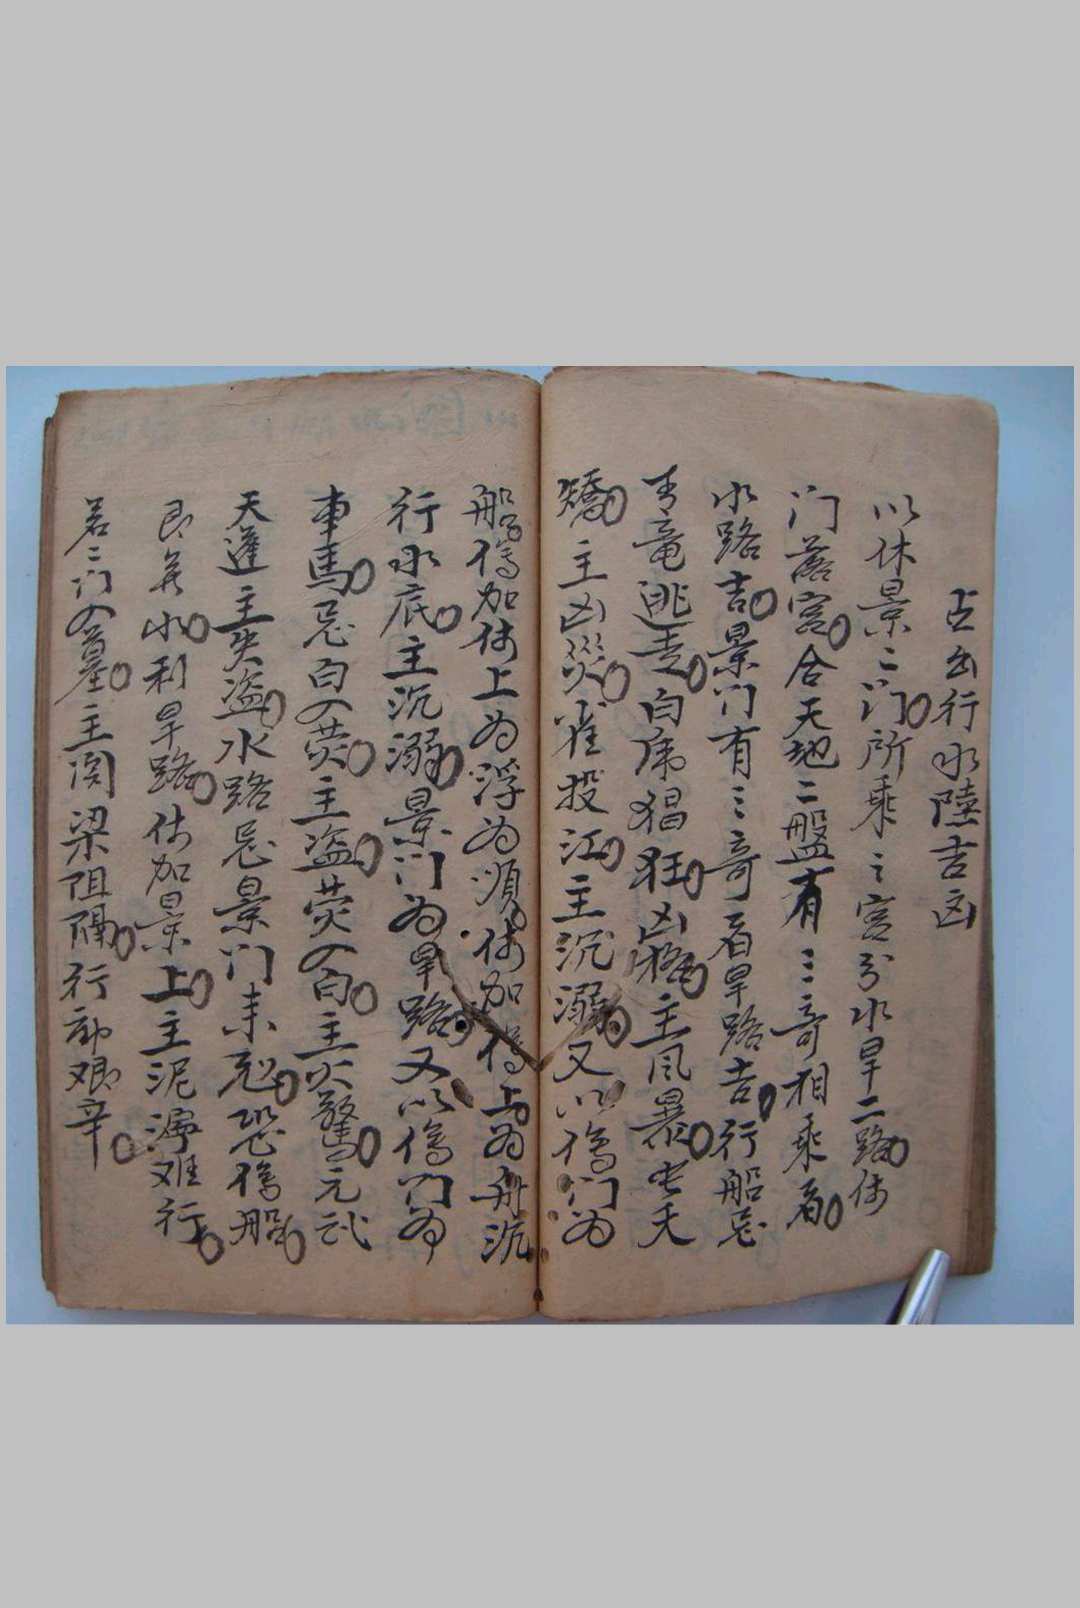 占出行水陸吉凶
以休景二门所乘之宫分水旱二路休
门落宫合天地二盤有三奇相乘者
水路吉景门有三奇者旱路吉行船忌
青竜逃走白虎猖狂凶格主風暴蛇夭
矯主凶災雀投江主沉溺又以傷门为
船傷加休上为浮为順休加傷上为舟沉
行水底主沉溺景门为旱路又以傷门为
車馬忌白入荧主盗荧入白主火驚元武
天蓬主失盗水路忌景门来尅恐傷船
艮無水利旱路休加景上主泥濘难行
若二门入墓主関梁阻隔行动艱辛